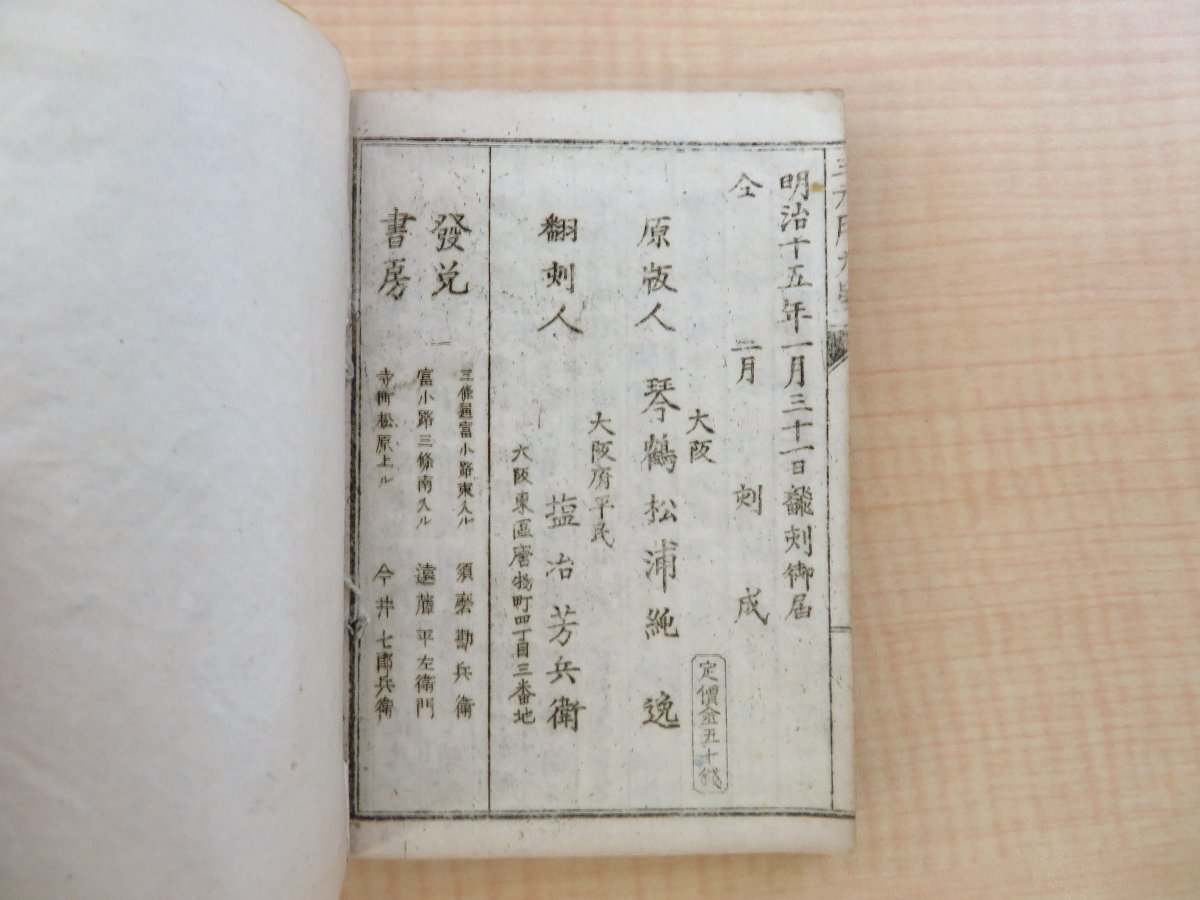 明治十五年一月三十一日飜刻御届
仝 二月 刻成
定價金五十錢
大阪
原版人 琴鶴松浦純逸
大阪府平民
翻刻人 塩冶芳兵衛
大阪東區唐物町四丁目三番地
發兌
書房
三條通富小路東入ル 須磨勘兵衛
富小路三條南入ル 遠藤平左衛門
寺町松原上ル 今井七郎兵衛